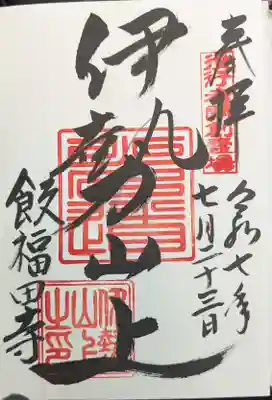 奉拝
令和七年
七月二十三日
伊勢山上
飯福田寺
伊勢
山上
之印